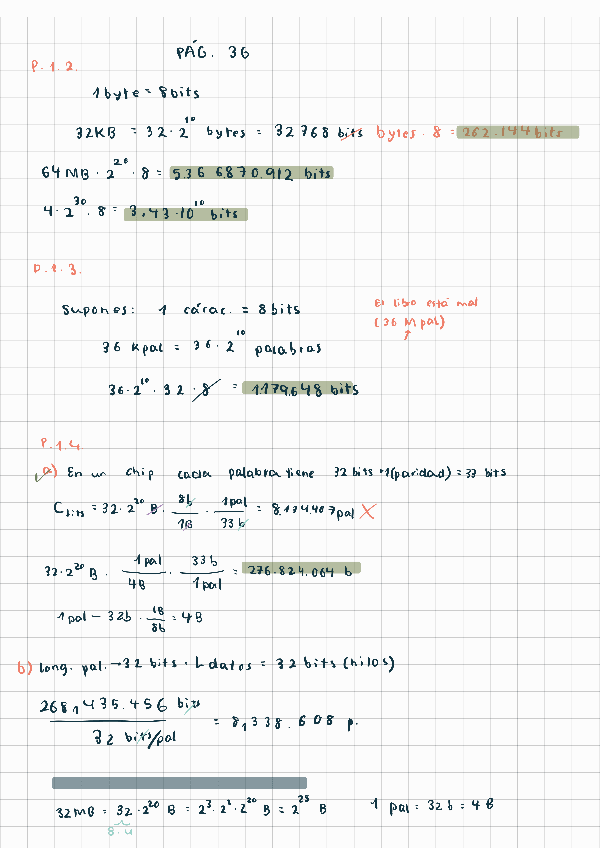 PÁG. 36
P.1.2.
1 byte = 8 bits
32KB = 32 · 2^10 bytes = 32768 bits bytes · 8 = 262.144 bits
64 MB · 2^20 · 8 = 536 6870.912 bits
4 · 2^30 · 8 = 3,43 · 10^10 bits
P.1.3.
Supones: 1 cárac. = 8 bits
El libro está mal
(36 M pal)
36 Kpal = 36 · 2^10 palabras
36 · 2^10 · 32 · 8 = 1.179.648 bits
P.1.4.
a) En un chip cada palabra tiene 32 bits + 1 (paridad) = 33 bits
C bits = 32 · 2^20 B · 8b/1B · 1pal/33b = 8.134.407 pal X
32 · 2^20 B · 1 pal/4B · 33 b/1 pal = 276.824.064 b
1 pal – 32b · 1B/8b = 4B
b) Long. pal. → 32 bits · L datos = 32 bits (hilos)
268,435.456 bits / 32 bits/pal = 8,338.608 p.
32 MB = 32 · 2^20 B = 2^3 · 2^2 · 2^20 B = 2^25 B 1 pal = 32b = 4B
8 · 4